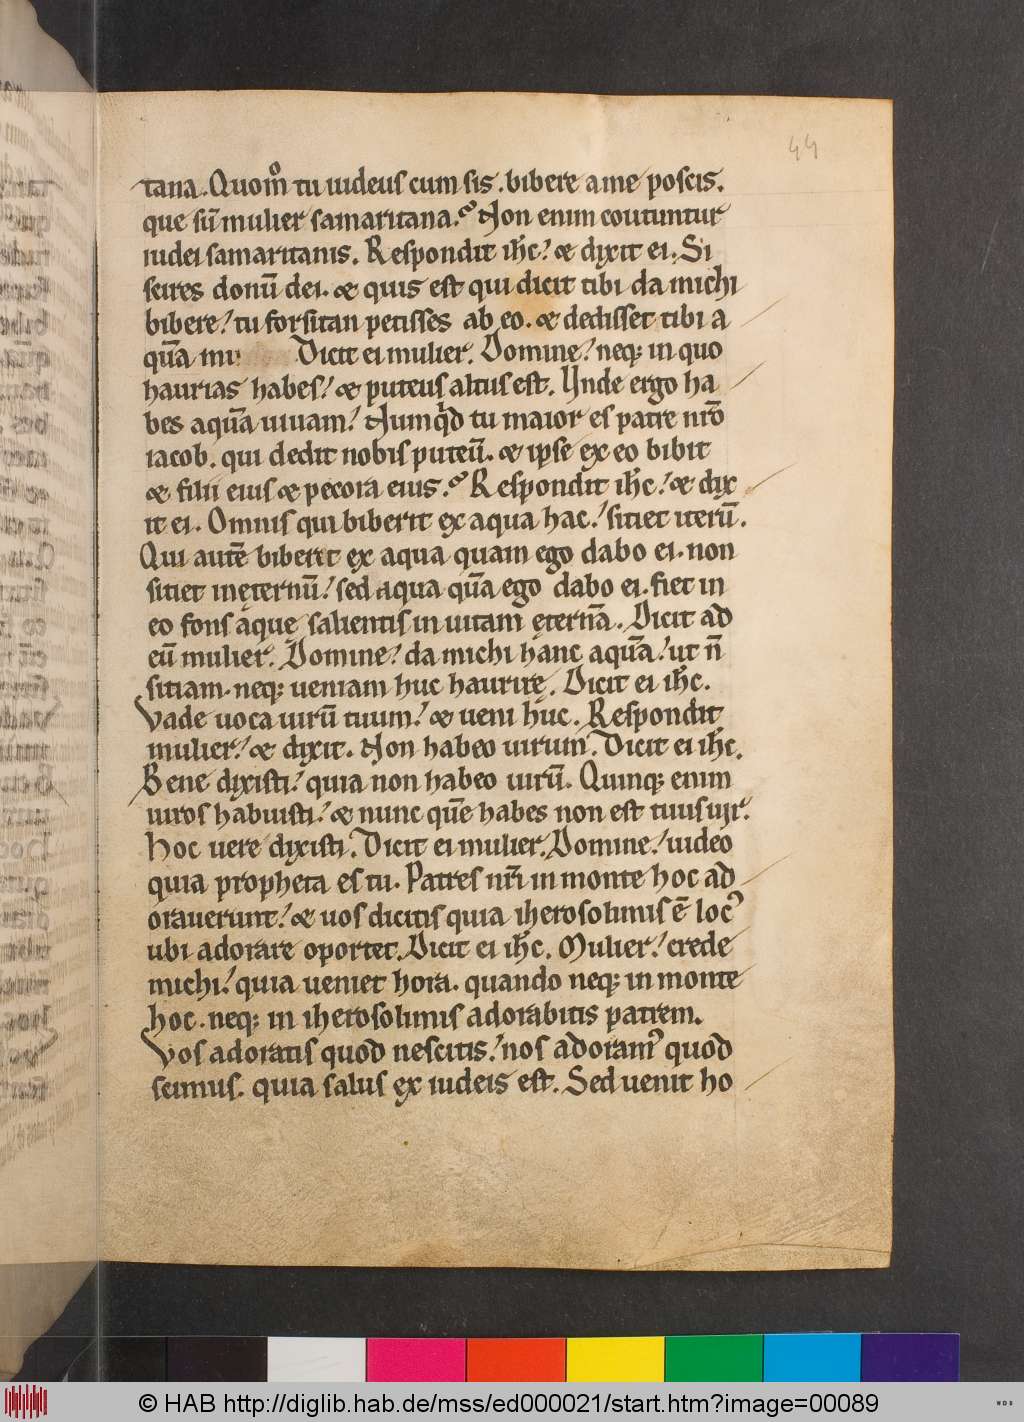 44
tana. Quom̊ tu iudeus cum sis. bibere a me poscis.
que sū mulier samaritana. Non enim coutuntur
iudei samaritanis. Respondit ih̄c. & dixit ei. Si
scires donū dei. & quis est qui dicit tibi da michi
bibere. tu forsitan petisses ab eo. & dedisset tibi a
quā Dicit ei mulier. Domine. neq; in quo
haurias habes. & puteus altus est. Unde ergo ha
bes aquā uiuam. Numqđ tu maior es patre nr̄o
iacob. qui dedit nobis puteū. & ipse ex eo bibit
& filii eius & pecora eius. Respondit ih̄c. & dix
it ei. Omnis qui biberit ex aqua hac. sitiet iterū.
Qui autē biberit ex aqua quam ego dabo ei. non
sitiet inęternū. sed aqua quā ego dabo ei. fiet in
eo fons aque salientis in uitam ęternā. Dicit ad
eū mulier. Domine. da michi hanc aquā. ut n̄
sitiam. neq; ueniam huc haurirę. Dicit ei ih̄c.
Vade uoca uirū tuum. & ueni huc. Respondit
mulier. & dixit. Non habeo uirum. Dicit ei ih̄c.
Bene dixisti. quia non habeo uirū. Quinq; enim
uiros habuisti. & nunc quē habes non est tuus uir.
Hoc uere dixisti. Dicit ei mulier. Domine. uideo
quia propheta es tu. Patres nr̄i in monte hoc ad
orauerunt. & uos dicitis quia iherosolimis ē locꝰ
ubi adorare oportet. Dicit ei ih̄c. Mulier. crede
michi. quia ueniet hora. quando neq; in monte
hoc. neq; in iherosolimis adorabitis patrem.
Vos adoratis quod nescitis. nos adoramꝰ quod
scimus. quia salus ex iudeis est. Sed uenit ho
© HAB http://diglib.hab.de/mss/ed000021/start.htm?image=00089